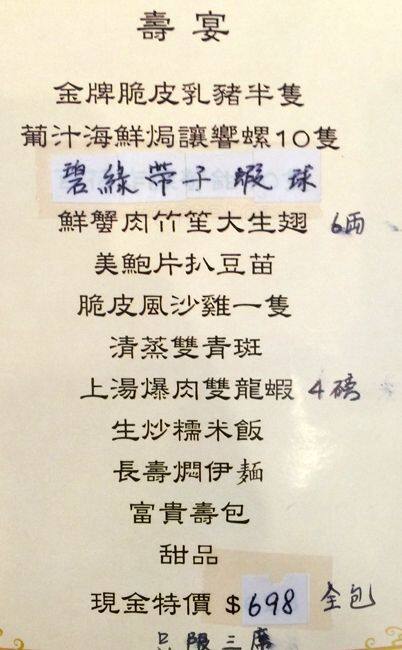 壽宴
金牌脆皮乳豬半隻
葡汁海鮮焗讓響螺10隻
碧綠帶子蝦球
鮮蟹肉竹笙大生翅 6両
美鮑片扒豆苗
脆皮風沙雞一隻
清蒸雙青斑
上湯爆肉雙龍蝦 4磅
生炒糯米飯
長壽燜伊麵
富貴壽包
甜品
現金特價 $698 全包
只限三席